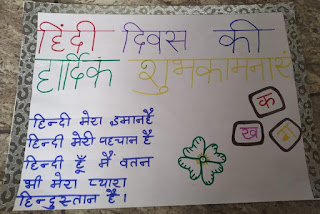 हिंदी दिवस की
हार्दिक शुभकामनासं
हिन्दी मेरा इमान है
हिन्दी मेरी पहचान है
हिन्दी हूँ मैं वतन
भी मेरा प्यारा
हिन्दुस्तान है।
क
ख